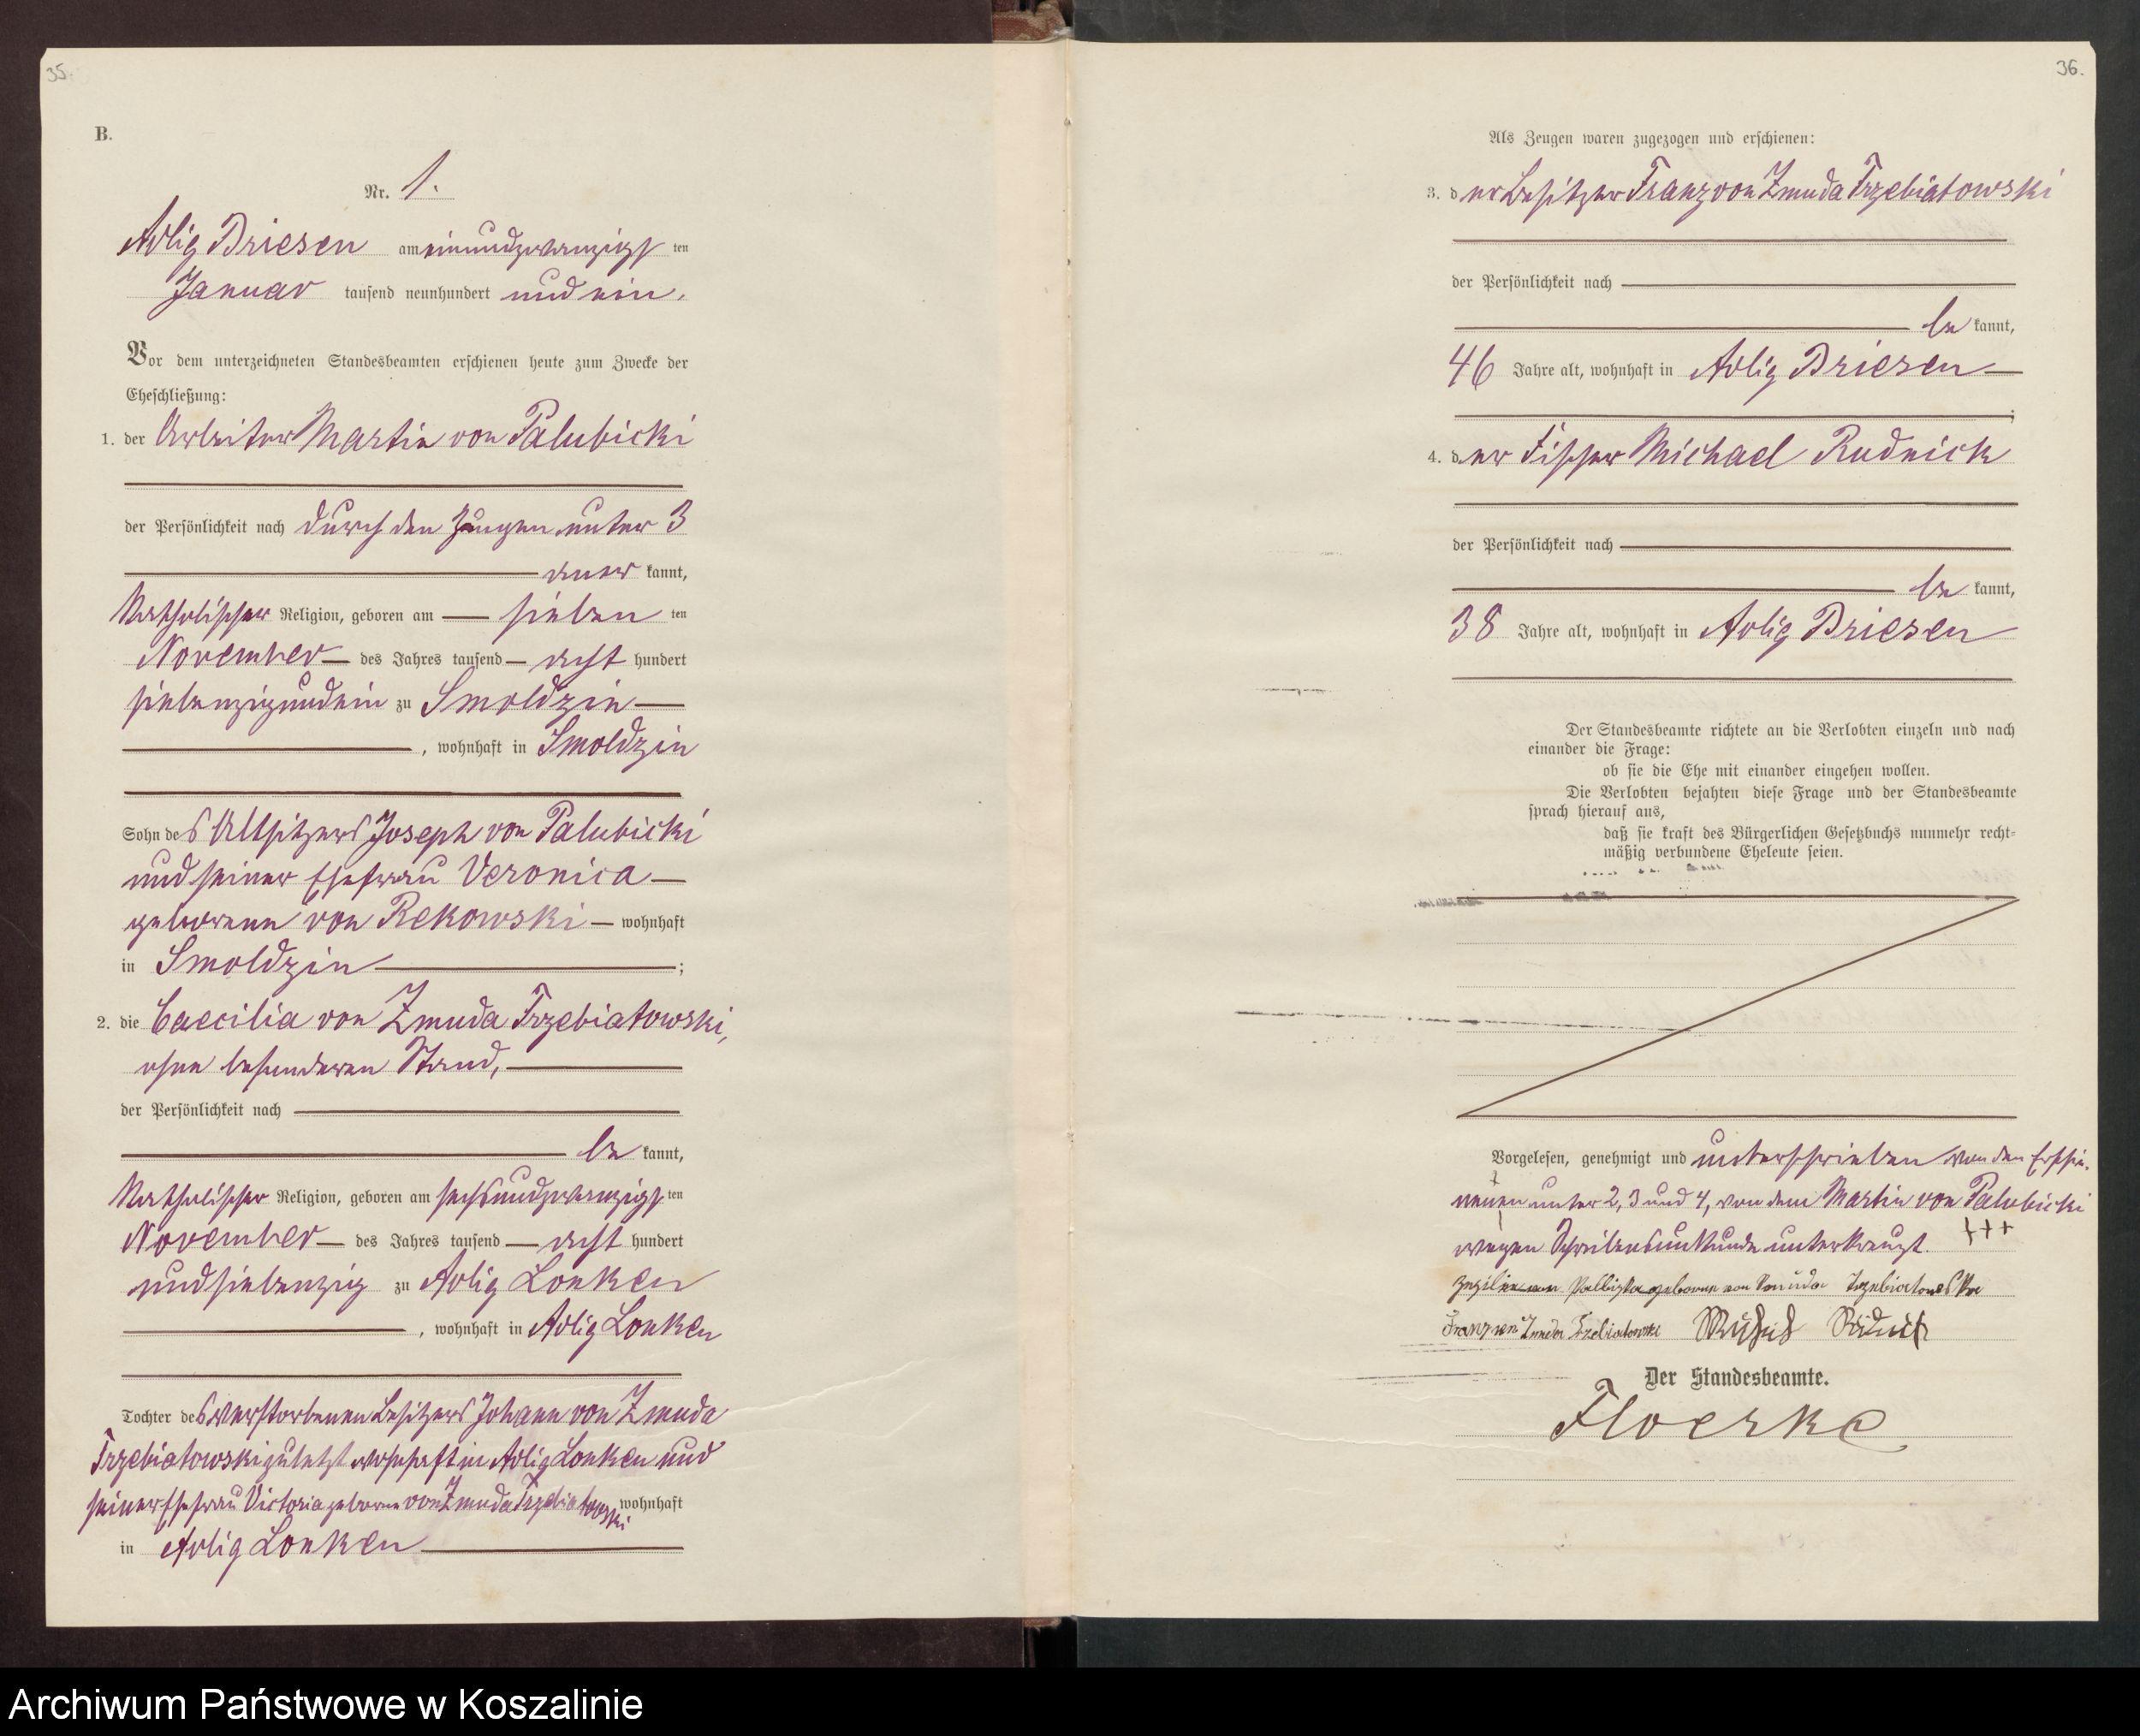 35.
B.
Nr. 1.
Adlig Briesen am einundzwanzigs ten
Januar tausend neunhundert und ein.
Vor dem unterzeichneten Standesbeamten erschienen heute zum Zwecke der
Eheschließung:
1. der Arbeiter Martin von Palubicki
der Persönlichkeit nach durch den Zeugen unter 3
aner kannt,
katholischer Religion, geboren am sieben ten
November des Jahres tausend acht hundert
siebenzigundein zu Smoldzin
, wohnhaft in Smoldzin
Sohn des Altsitzers Joseph von Palubicki
und seiner Ehefrau Veronica
geborenen von Rekowski wohnhaft
in Smoldzin ;
2. die Caecilia von Zmuda Trzebiatowski,
ohne besonderen Stand,
der Persönlichkeit nach
be kannt,
katholischer Religion, geboren am sechsundzwanzigs ten
November des Jahres tausend acht hundert
undsiebenzig zu Adlig Lonken
, wohnhaft in Adlig Lonken
Tochter des verstorbenen Besitzers Johann von Zmuda
Trzebiatowski zuletzt wohnhaft in Adlig Lonken und
seiner Ehefrau Victoria geborene von Zmuda Trzebiatowski wohnhaft
in Adlig Lonken
36.
Als Zeugen waren zugezogen und erschienen:
3. der Besitzer Franz von Zmuda Trzebiatowski
der Persönlichkeit nach
be kannt,
46 Jahre alt, wohnhaft in Adlig Briesen
;
4. der Fischer Michael Rudnick
der Persönlichkeit nach
be kannt,
38 Jahre alt, wohnhaft in Adlig Briesen
Der Standesbeamte richtete an die Verlobten einzeln und nach
einander die Frage:
ob sie die Ehe mit einander eingehen wollen.
Die Verlobten bejahten diese Frage und der Standesbeamte
sprach hierauf aus,
daß sie kraft des Bürgerlichen Gesetzbuchs nunmehr recht-
mäßig verbundene Eheleute seien.
Vorgelesen, genehmigt und unterschrieben von den Erschie-
nenen unter 2, 3 und 4, von dem Martin von Palubicki
wegen Schreibensunkunde unterkreuzt. +++
geborene von Zmuda
Franz von Zmuda Trzebiatowski Michael Rudnick
Der Standesbeamte.
Floerke
Archiwum Państwowe w Koszalinie